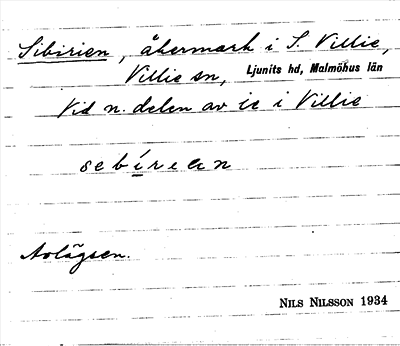 Sibirien, åkermark i S. Villie,
Villie sn, Ljunits hd, Malmöhus län
Vid n. delen av i Villie
sebírien
Avlägsen.
NILS NILSSON 1934